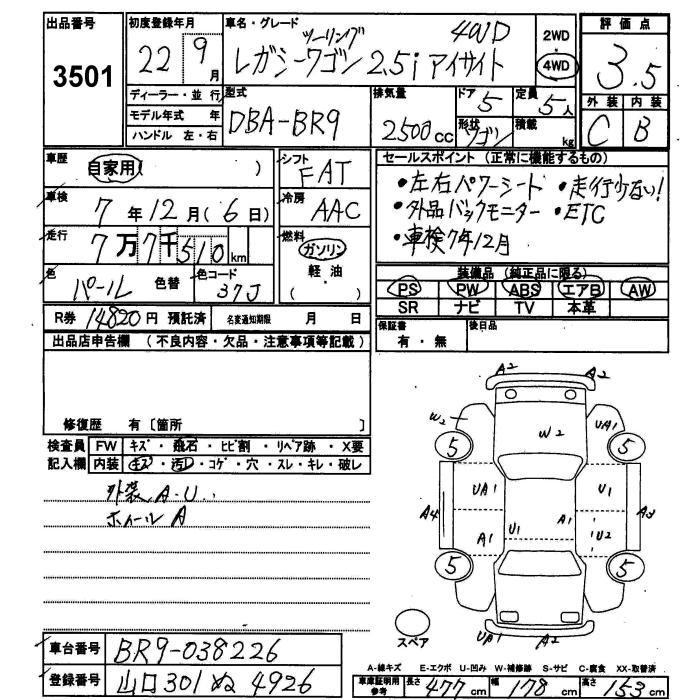 出品番号
3501
初度登録年月
22 9月
ディーラー・並行
モデル年式 年
ハンドル 左・右
車名・グレード
ツーリング 4WD
レガシーワゴン 2.5i アイサイト
2WD
4WD
型式
DBA-BR9
排気量
2500cc
ドア 5
定員 5人
形状 ワゴン
積載 kg
評価点
3.5
外装 内装
C B
車歴
自家用( )
車検
7年12月(6日)
走行
7万7千510km
色
パール 色替
色コード
37J
シフト
FAT
冷房
AAC
燃料
ガソリン
軽・油
( )
R券 14820円 預託済
名変通知期限 月 日
セールスポイント (正常に機能するもの)
・左右パワーシート ・走行少ない!
・外品バックモニター ・ETC
・車検7年12月
装備品 (純正品に限る)
PS PW ABS エアB AW
SR ナビ TV 本革
保証書
有・無
後日品
出品店申告欄 (不良内容・欠品・注意事項等記載)
修復歴 有〔箇所 〕
検査員 FW キズ・飛石・ヒビ割・リペア跡・X要
記入欄 内装 キズ・汚レ・コゲ・穴・スレ・キレ・破レ
外装 A.U..
ホイールA
A2 A2
W2 W2 UA1
5 5
UA1 U1
A4 A3
A1 U1 A1 U2
5 5
スペア
UA1 A2
車台番号 BR9-038226
登録番号 山口301ぬ4926
A-線キズ E-エクボ U-凹み W-補修跡 S-サビ C-腐食 XX-取替済
車庫証明用参考 長さ 477cm 幅 178cm 高さ 153cm